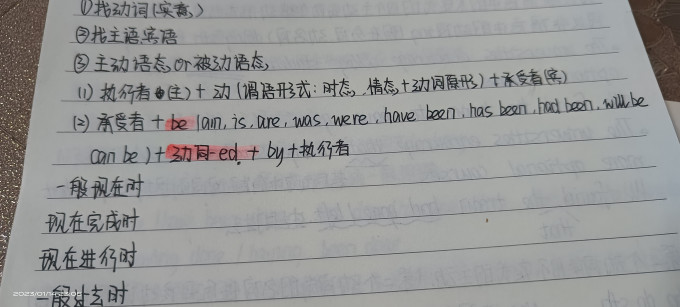 ①找动词(实意)
②找主语宾语
③主动语态or被动语态
(1) 执行者(主)+动(谓语形式:时态,情态+动词原形)+承受者(宾)
(2) 承受者+be(am,is,are,was,were,have been,has been,had been,will be
can be)+动词-ed+by+执行者
一般现在时
现在完成时
现在进行时
一般过去时
2023/01/14